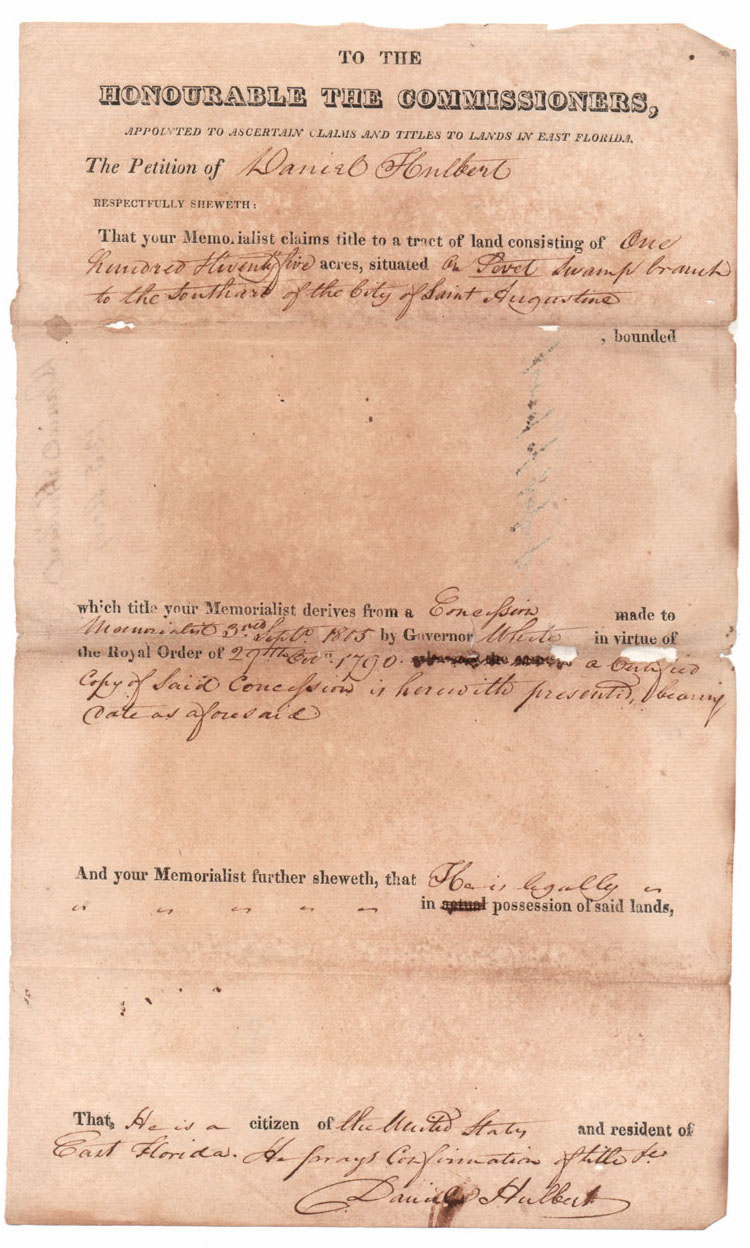 TO THE
HONOURABLE THE COMMISSIONERS,
APPOINTED TO ASCERTAIN CLAIMS AND TITLES TO LANDS IN EAST FLORIDA.
The Petition of Daniel Hulbert
RESPECTFULLY SHEWETH:
That your Memorialist claims title to a tract of land consisting of One
hundred & twenty five acres, situated on Pevet Swamp branch
to the Southard of the City of Saint Augustine
, bounded
which title your Memorialist derives from a Concession made to
Memorialist 3rd Septr. 1815 by Governor White in virtue of
the Royal Order of 29th Octr. 1790. a Certified
Copy of Said Concession is herewith presented, bearing
date as aforesaid
And your Memorialist further sheweth, that He is legally "
" " " " " " in actual possession of said lands,
That, He is a citizen of the United States and resident of
East Florida. He prays Confirmation of title &c
Daniel Hulbert